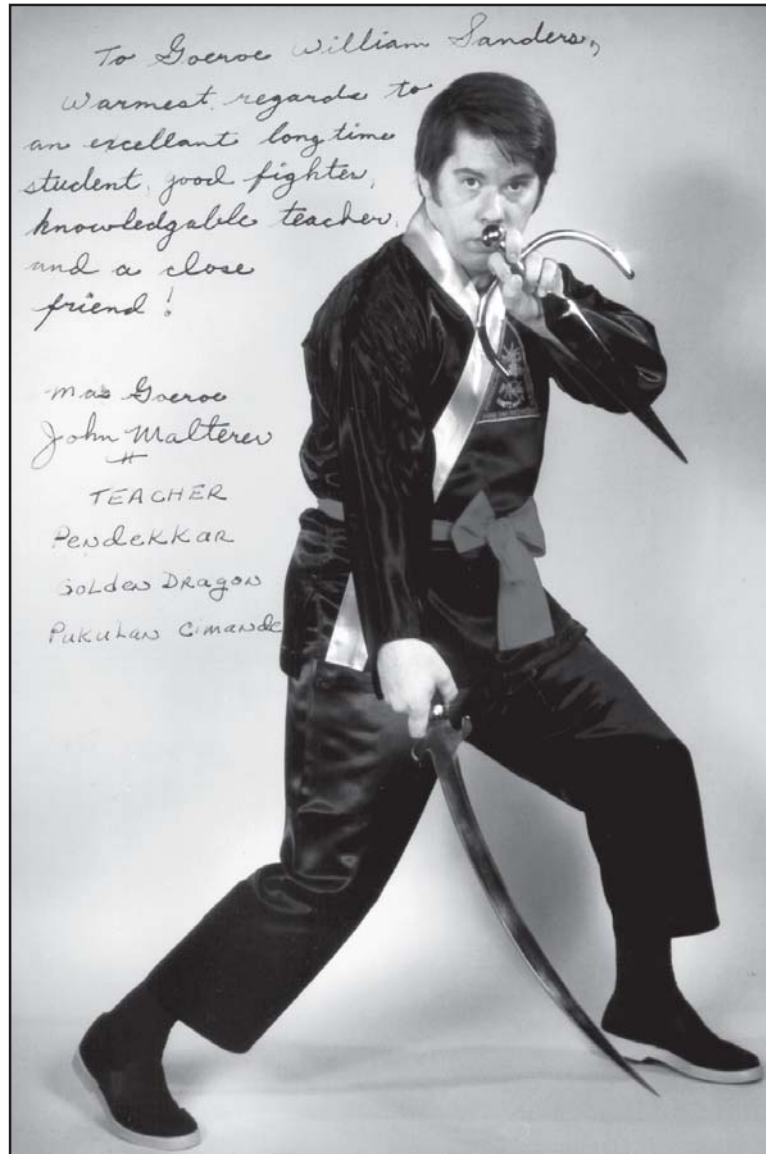 To Goeroe William Sanders,
Warmest regards to
an excellant long time
student, good fighter,
knowledgable teacher,
and a close
friend !
Mas Goeroe
John Malterer
TEACHER
PENDEKKAR
GOLDEN DRAGON
PUKULAN CIMANDE